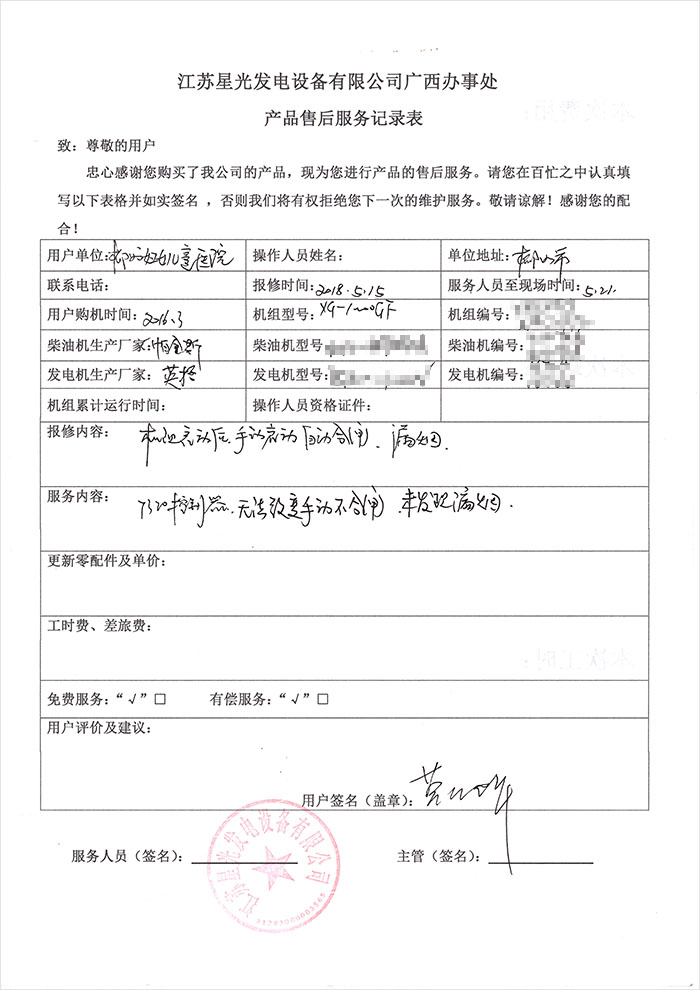 江苏星光发电设备有限公司广西办事处
产品售后服务记录表
致：尊敬的用户
忠心感谢您购买了我公司的产品，现为您进行产品的售后服务。请您在百忙之中认真填
写以下表格并如实签名 ，否则我们将有权拒绝您下一次的维护服务。敬请谅解！感谢您的配
合！
用户单位：柳州妇幼儿童医院 操作人员姓名： 单位地址：柳州市
联系电话： 报修时间：2018.5.15 服务人员至现场时间：5.21.
用户购机时间：2016.3 机组型号：XG-1000GF 机组编号：
柴油机生产厂家：帕金斯 柴油机型号： 柴油机编号：
发电机生产厂家：英格 发电机型号： 发电机编号：
机组累计运行时间： 操作人员资格证件：
报修内容：机组启动后，手动启动自动合闸、漏烟.
服务内容：7320控制器，无法改变手动不合闸，未发现漏烟.
更新零配件及单价：
工时费、差旅费：
免费服务：“√”□ 有偿服务：“√”□
用户评价及建议：
用户签名（盖章）：
服务人员（签名）： 主管（签名）：
江苏星光发电设备有限公司